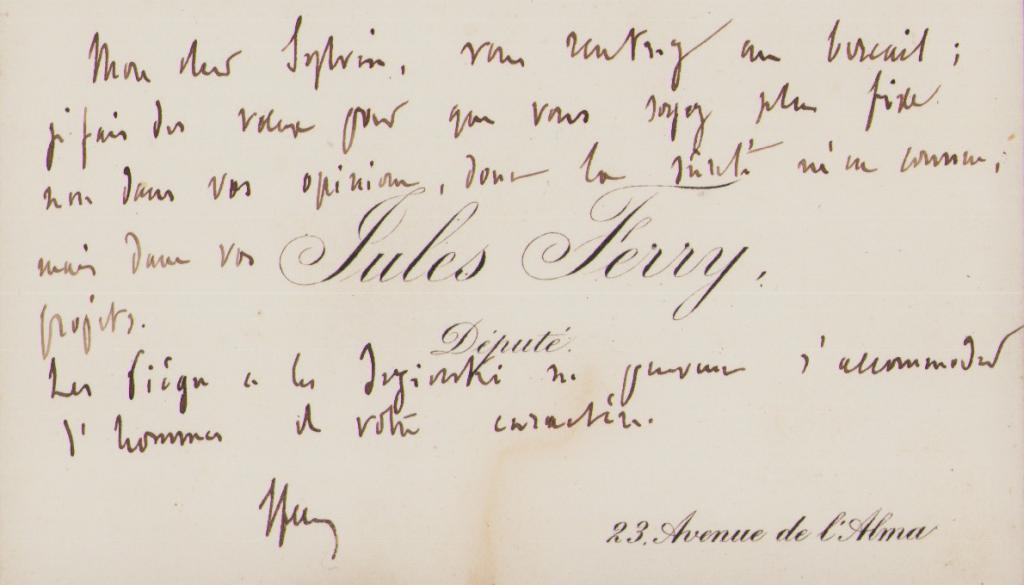 Mon cher Sylvin, vous rentrez au bercail ;
je fais des vœux pour que vous soyez plus fixe
non dans vos opinions, dont la sûreté m'est connue ;
mais dans vos
Jules Ferry,
projets.
Député.
Les Siège et les ne peuvent s'accommoder
d'hommes de votre caractère.
JFerry
23, Avenue de l'Alma